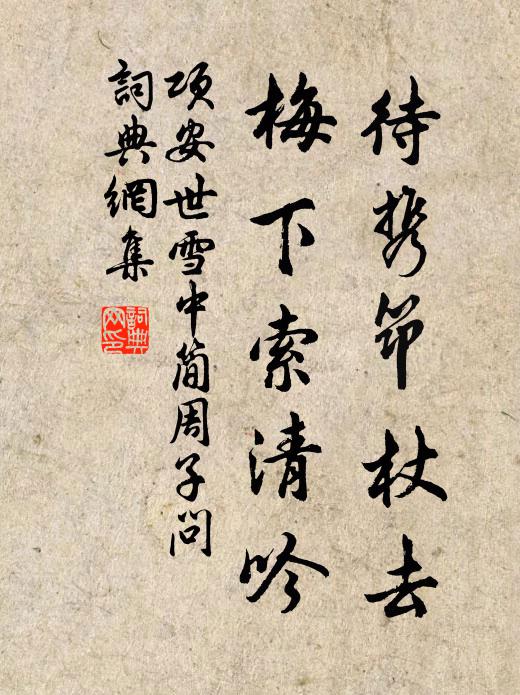 待携笻杖去
梅下索清吟
项安世雪中简周子问
词典網集
詞典網印